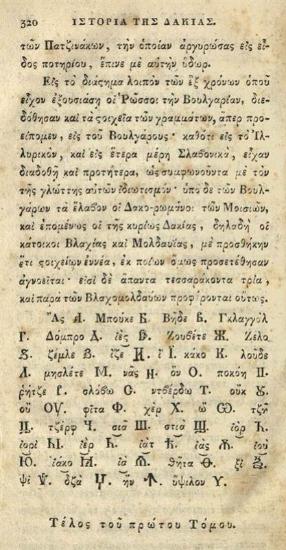 320 ΙΣΤΟΡΙΑ ΤΗΣ ΔΑΚΙΑΣ.
τῶν Πατζινάκων, τὴν ὁποίαν ἀργυρώσας εἰς εἶ-
δος ποτηρίου, ἔπινε μὲ αὐτὴν ὕδωρ.
Εἰς τὸ διάςημα λοιπὸν τῶν ἓξ χρόνων ὁποῦ
εἶχον ἐξουσιάσῃ οἱ Ῥῶσσοι τὴν Βουλγαρίαν, διε-
δόθησαν καὶ τὰ ςοιχεῖα τῶν γραμμάτων, ἅπερ προ-
είπομεν, εἰς τοὺς Βουλγάρους· καθότι εἰς τὸ Ἰλ-
λυρικὸν, καὶ εἰς ἕτερα μέρη Σλαβονικὰ, εἶχαν
διαδοθῆ καὶ προτήτερα, ὡς συμφωνοῦντα μὲ τὸν
τῆς γλώττης αὐτῶν ἰδιωτισμόν· ὑπὸ δὲ τῶν Βουλ-
γάρων τὰ ἔλαβον οἱ Δακο-ρωμάνοι τῶν Μοισιῶν,
καὶ ἑπομένως οἱ τῆς κυρίως Δακίας, δηλαδὴ οἱ
κάτοικοι Βλαχίας καὶ Μολδαυΐας, μὲ προσθήκην
ἔτι ςοιχείων ἐννέα, ἐκ ποίων ὅμως προσετέθησαν
ἀγνοεῖται· εἰσὶ δὲ ἅπαντα τεσσαράκοντα τρία,
καὶ παρὰ τῶν Βλαχομολδαύων προφέρονται οὕτως.
Ἂς А. Μπούκε Б. Βήδε В. Γκλαγγόλ
Г. Δόμπρο Д. ἱὲς Ζουβέτε Ж. Ζέλο
Ѕ. ζέμλε ἴζε И. ἲ І. κάκο К. λούδε
Л. μησλέτε М. νὰς Н. ὂν О. ποκόη П.
ρήτζε Р. σλόβω С. ντβέρδω Т. οὒκ У.
οὒ ΟΥ. φίτα Ф. χὲρ Х. ὦ Ѡ. τζῆ
Ц. τζέρφ Ч. σιὰ Ш. στιὰ Щ. ἰὸρ Ъ.
ἰορὶ Ы. ἰὲρ Ь. ἰὰτ Ѣ. ἰὰς Ѫ. ἰοῦ
Ю. ἰάκο Ꙗ. ἰὰ Ѧ. θῆτα Ѳ. ξὶ Ѯ.
ψὶ Ѱ. ὀζὰ Џ. ἢν ὕψιλον Υ.
Τέλος τοῦ πρώτου Τόμου.